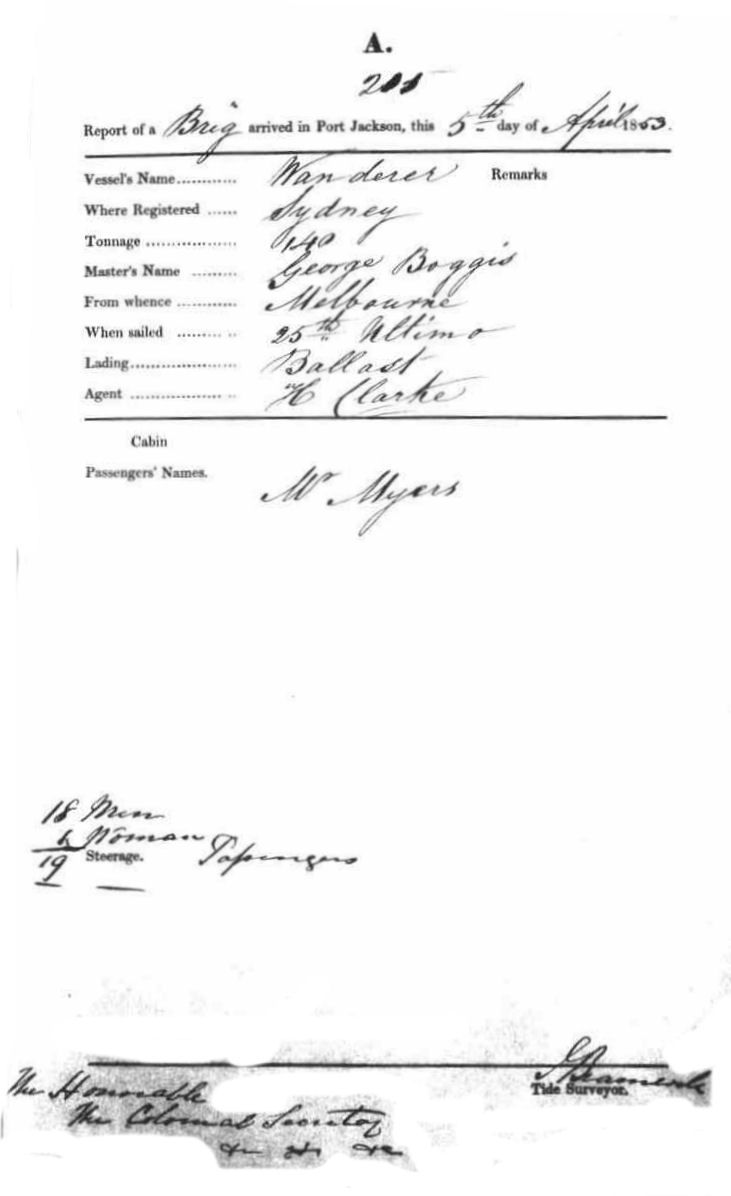 A.
205
Report of a Brig arrived in Port Jackson, this 5th day of April 1853.
Vessel's Name ............ Wanderer Remarks
Where Registered ...... Sydney
Tonnage .................. 140
Master's Name ......... George Boggis
From whence ............ Melbourne
When sailed ......... .. 25th Ultimo
Lading ..................... Ballast
Agent .................. .. H Clarke
Cabin
Passengers' Names.
Mr Myers
18 Men
1 Woman
19 Steerage. Passengers
Tide Surveyor.
The Honorable
The Colonial Secretary
&c &c &c